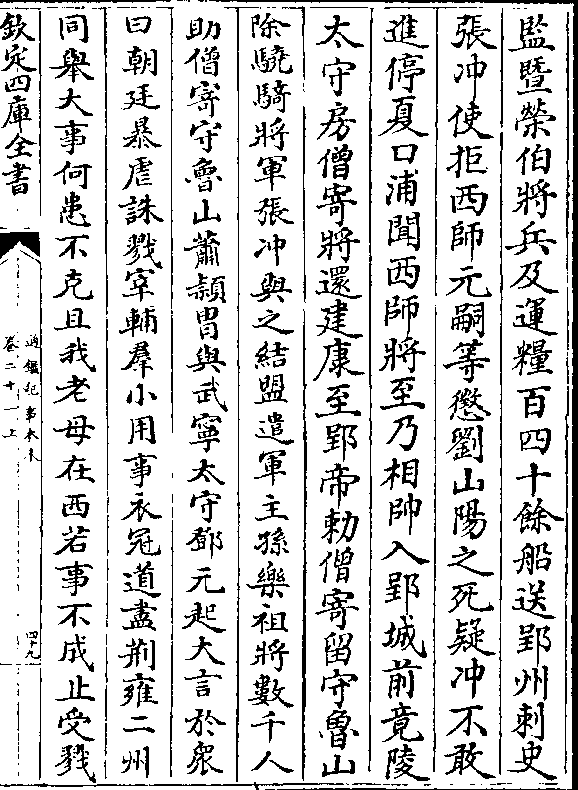 監暨榮伯將兵及運糧百四十餘船送郢州刺史
張冲使拒西師元嗣等懲劉山陽之死疑冲不敢
進停夏口浦聞西師將至乃相帥入郢城前竟陵
太守房僧寄將還建康至郢帝勅僧寄留守魯山
除驍騎將軍張冲與之結盟遣軍主孫樂祖將數千人
助僧寄守魯山蕭頴胄與武寧太守鄧元起大言於衆
曰朝廷暴虐誅戮宰輔羣小用事衣冠道盡荆雍二州
同舉大事何患不克且我老母在西若事不成止受戮
欽定四庫全書
通鑑紀事本末
卷二十一上
四十九